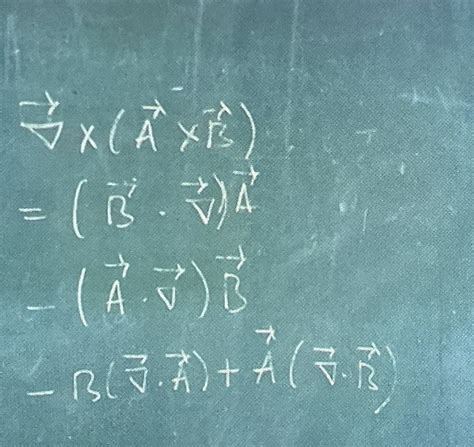 ∇⃗ × (A⃗ × B⃗)
= (B⃗ · ∇⃗) A⃗
− (A⃗ · ∇⃗) B⃗
− B(∇⃗ · A⃗) + A⃗ (∇⃗ · B⃗)